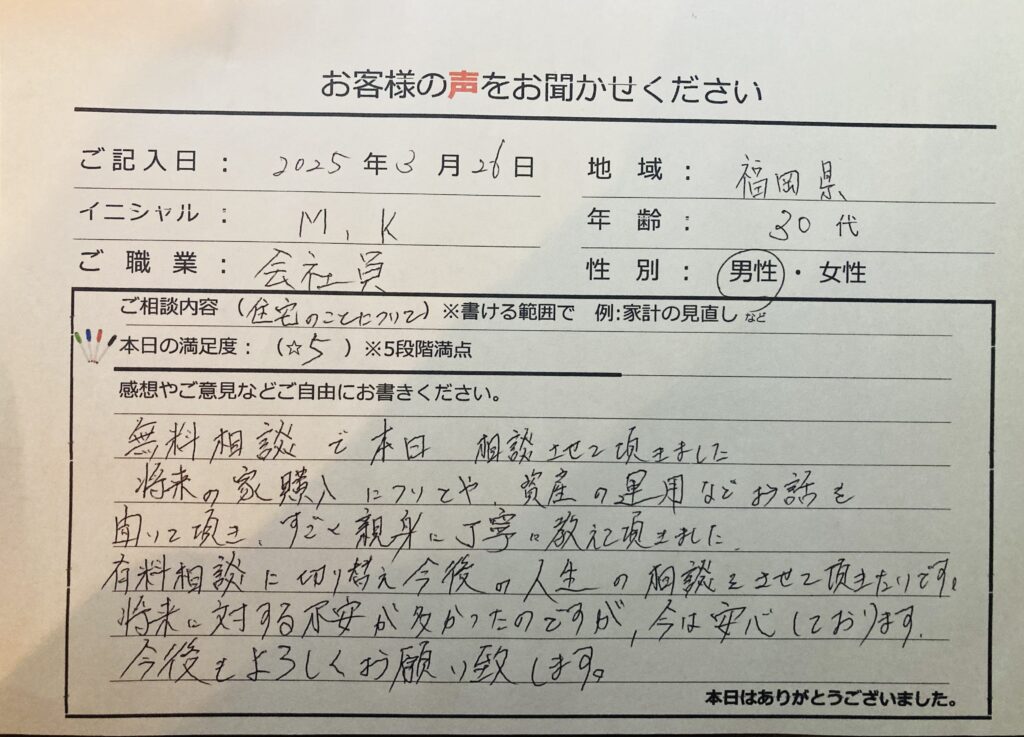 お客様の声をお聞かせください
ご記入日 : 2025 年 3 月 26 日
地域 : 福岡県
イニシャル : M.K
年齢 : 30代
ご職業 : 会社員
性別 : 男性・女性
ご相談内容 (住宅のことについて) ※書ける範囲で 例:家計の見直し など
本日の満足度 : (☆5) ※5段階満点
感想やご意見などご自由にお書きください。
無料相談で本日 相談させて頂きました
将来の家購入についてや、資産の運用などお話を
聞いて頂き、すごく親身に丁寧に教えて頂きました。
有料相談に切り替え今後の人生の相談をさせて頂きたいです。
将来に対する不安が多かったのですが、今は安心しております。
今後もよろしくお願い致します。
本日はありがとうございました。